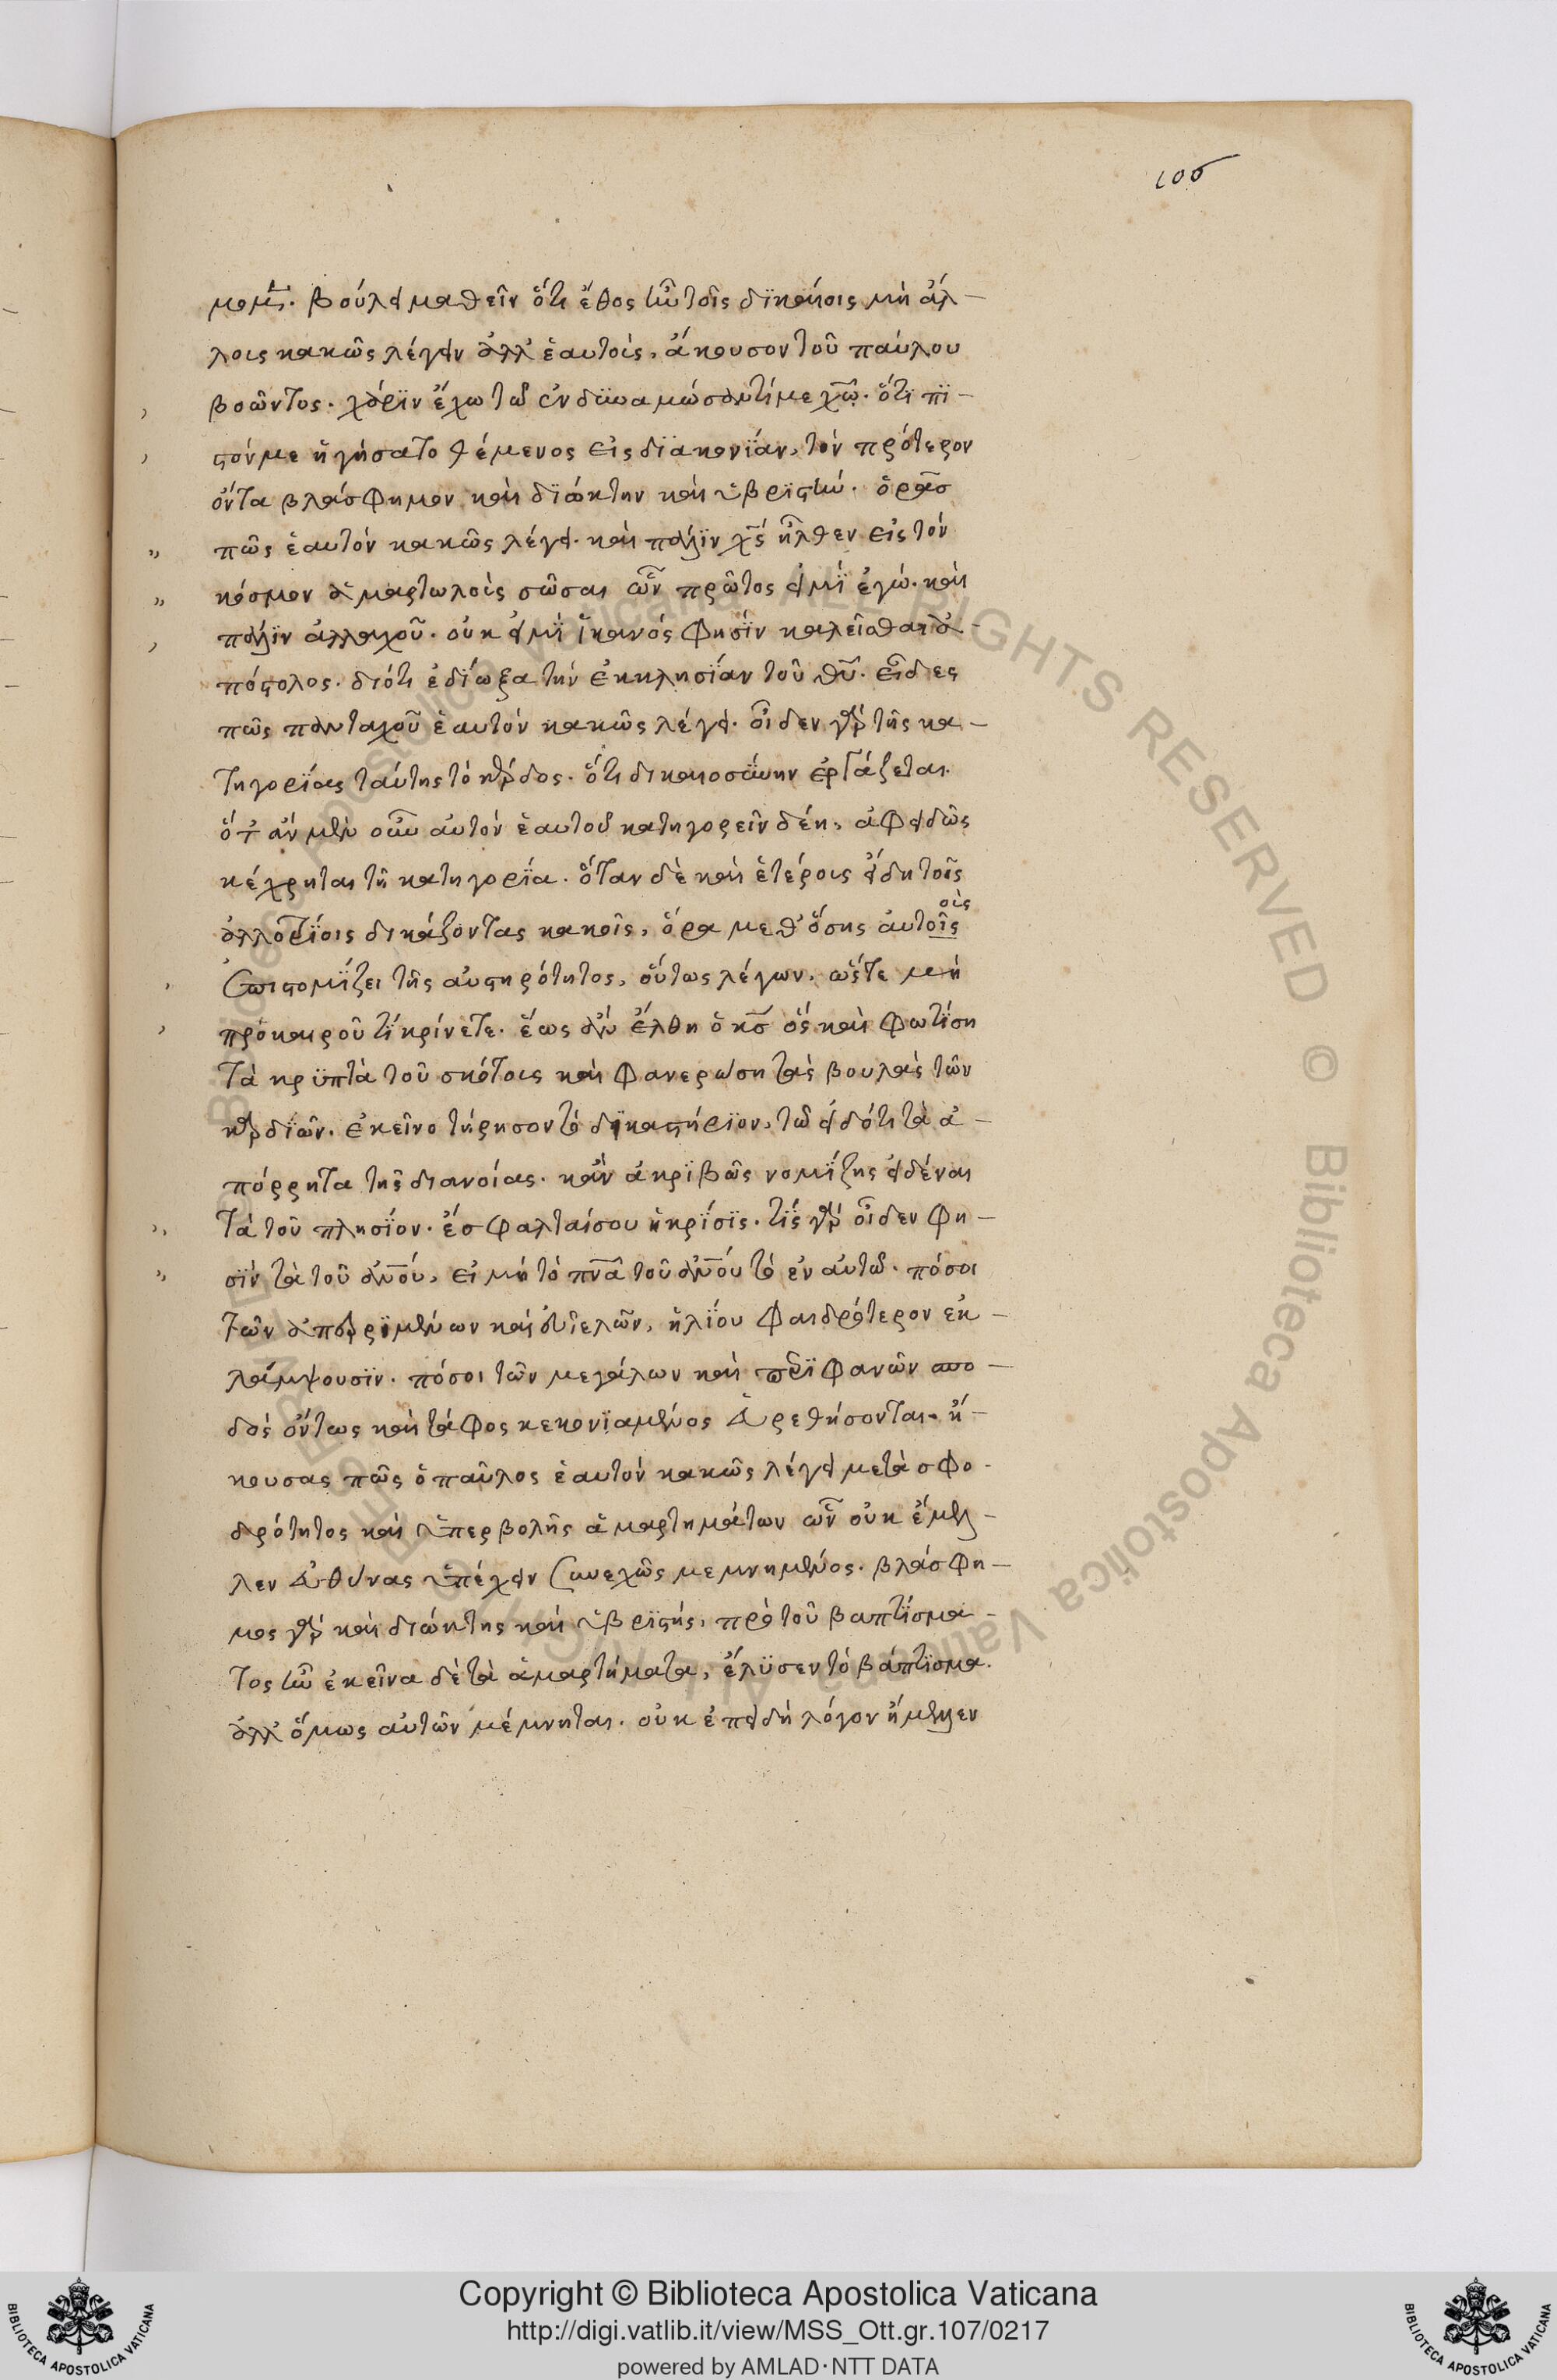 105
μομ̅ς. βούλει μαθεῖν ὅτι ἔθος ἦν τοῖς δϊκαίοις μὴ ἄλ-
λοις κακῶς λέγειν ἀλλ' ἑαυτοὺς, ἄκουσον τοῦ παύλου
βοῶντος. χάρϊν ἔχω τῶ ἐνδϋναμώσαντί με χ̅ω̅. ὅτϊ πϊ-
στόν με ἡγήσατο θέμενος εἰς δϊακονΐαν, τὸν πρότερον
ὄντα βλάσφημον καὶ δϊώκτην καὶ ὑβρϊστήν. ὁρᾶσ
πῶς ἑαυτὸν κακῶς λέγει. καὶ πάλϊν χ̅ς̅ ἦλθεν εἰς τὸν
κόσμον ἁμαρτωλοὺς σῶσαι ὧν πρῶτος εἰμΐ ἐγώ. καὶ
πάλϊν ἀλλαχοῦ. οὐκ εἰμΐ ἱκανός φησΐν καλεῖσθαι ἀ-
πόστολος. διότι ἐδΐωξα τὴν ἐκκλησΐαν τοῦ θ̅υ̅. εἶδες
πῶς πανταχοῦ ἑαυτὸν κακῶς λέγει. οἶδεν γὰρ τῆς κα-
τηγορΐας ταύτης τὸ κέρδος. ὅτι δικαιοσΰνην ἐργάζεται.
ὅτ' ἂν μὲν οὖν αὐτὸν ἑαυτοῦ κατηγορεῖν δέη, ἀφειδῶς
κέχρηται τῆ κατηγορΐα. ὅταν δὲ καὶ ἑτέροις εἴδη τοῖς
ἀλλοτρΐοις δικάζοντας κακοῖς, ὅρα μεθ' ὅσης αὐτοῖς
οὺς
ἐπιστομΐζει τῆς αὐστηρότητος, οὕτως λέγων. ὥστε μὴ
πρὸ καιροῦ τΐ κρίνετε. ἕως ἂν ἔλθη ὁ κ̅σ̅ ὃς καὶ φωτΐση
τὰ κρϋπτὰ τοῦ σκότοις καὶ φανερώση τὰς βουλὰς τῶν
καρδϊῶν. ἐκεῖνο τήρησον τὸ δϊκαστήρϊον, τῶ εἰδότι τὰ ἀ-
πόρρητα τῆς διανοίας. κἂν ἀκρϊβῶς νομΐζης εἰδέναι
τὰ τοῦ πλησΐον. ἔσφαλταί σου ἡ κρΐσϊς. τΐς γὰρ οἶδεν φη-
σΐν τὰ τοῦ ἀν̅ο̅υ̅, εἰ μὴ τὸ πν̅α̅ τοῦ ἀν̅ο̅υ̅ τὸ ἐν αὐτῶ. πόσοι
τῶν ἀπερρϊμμένων καὶ εὐτελῶν, ἡλΐου φαιδρότερον ἐκ-
λάμψουσϊν. πόσοι τῶν μεγάλων καὶ περϊφανῶν σπο-
δὸς ὄντως καὶ τάφος κεκονϊαμένος εὑρεθήσονται. ἤ-
κουσας πῶς ὁ παῦλος ἑαυτὸν κακῶς λέγει μετὰ σφο-
δρότητος καὶ ὑπερβολῆς ἁμαρτημάτων ὧν οὐκ ἔμελ-
λεν εὐθύνας ὑπέχειν συνεχῶς μεμνημένος. βλάσφη-
μος γὰρ καὶ διώκτης καὶ ὑβρϊστής, πρὸ τοῦ βαπτΐσμα-
τος ἦν ἐκεῖνα δὲ τὰ ἁμαρτήματα, ἔλϋσεν τὸ βάπτϊσμα.
ἀλλ' ὅμως αὐτῶν μέμνηται. οὐκ ἐπειδὴ λόγον ἤμελλεν
Copyright © Biblioteca Apostolica Vaticana
http://digi.vatlib.it/view/MSS_Ott.gr.107/0217
powered by AMLAD·NTT DATA
BIBLIOTECA APOSTOLICA VATICANA
BIBLIOTECA APOSTOLICA VATICANA